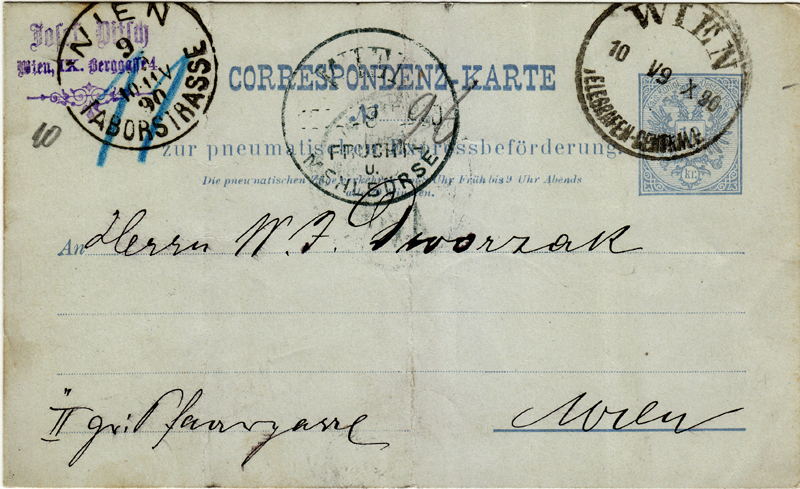 Josef Pitsch
Wien, IX. Berggasse 4.
WIEN
9
10.11V
90
TABORSTRASSE
11
10
CORRESPONDENZ-KARTE
zur pneumatischen Expressbeförderung.
Die pneumatischen Uhr Früh bis 9 Uhr Abends
FRUCHT-
U.
MEHLBÖRSE
90
WIEN
10 V9 X 90
TELEGRAFEN-CENTRALE
kr.
An Herrn W. J. Dworzak
II gr. Pfarrgasse
Wien